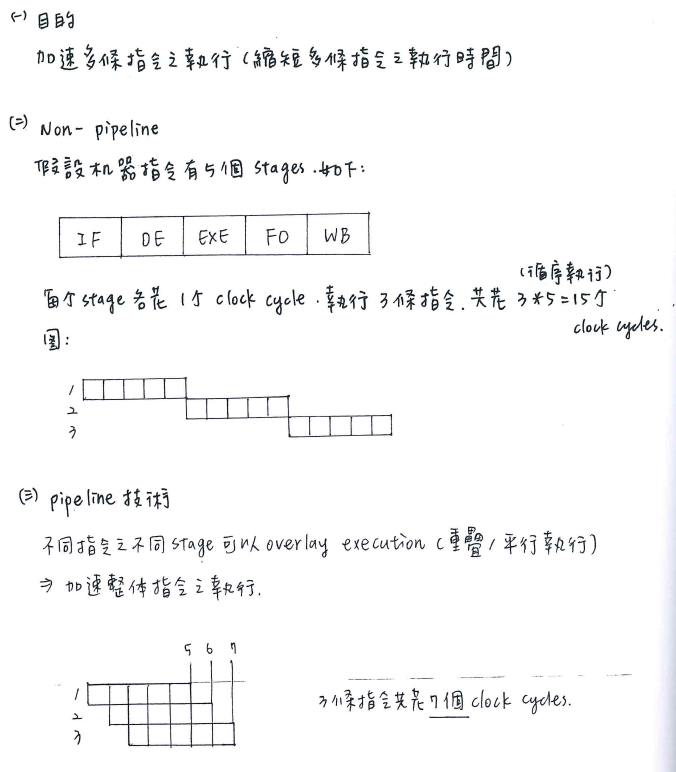 (一) 目的
加速多條指令之執行(縮短多條指令之執行時間)
(二) Non-pipeline
假設机器指令有5個 stages.如下:
IF DE EXE FO WB
(循序執行)
每个stage各花 1个 clock cycle.執行3條指令.共花 3*5=15个
clock cycles.
圖:
1
2
3
(三) pipeline 技術
不同指令之不同stage可以overlay execution (重疊/平行執行)
⇒ 加速整体指令之執行.
5 6 7
1
2
3
3條指令共花7個 clock cycles.